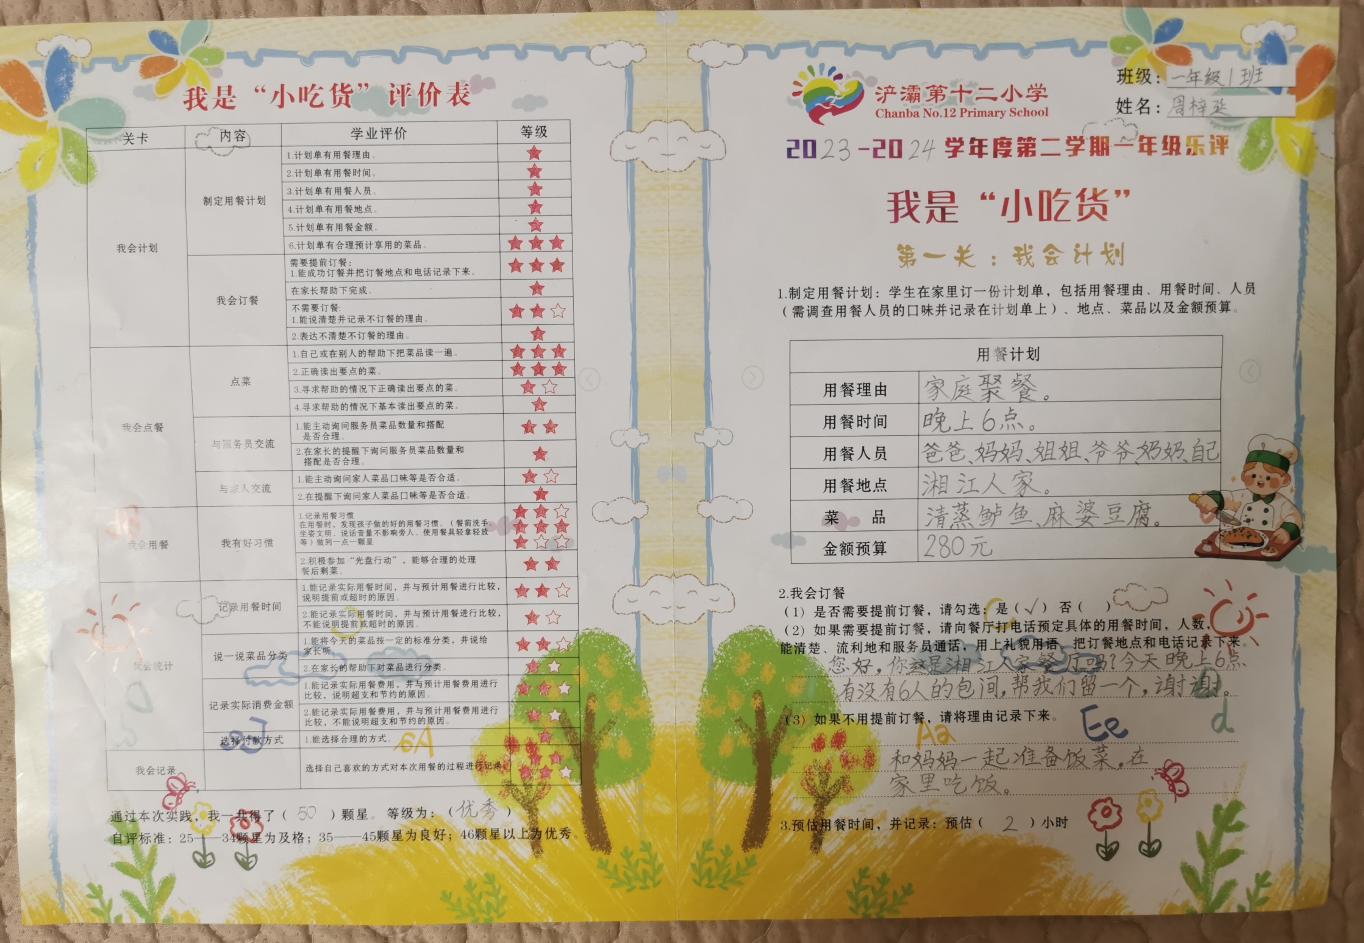 我是“小吃货”评价表
关卡 内容 学业评价 等级
我会计划
制定用餐计划
1.计划单有用餐理由。
2.计划单有用餐时间。
3.计划单有用餐人员。
4.计划单有用餐地点。
5.计划单有用餐金额。
6.计划单有合理预计享用的菜品。
我会订餐
需要提前订餐:
1.能成功订餐并把订餐地点和电话记录下来。
在家长帮助下完成。
不需要订餐:
1.能说清楚并记录不订餐的理由。
2.表达不清楚不订餐的理由。
我会点餐
点菜
1.自己或在别人的帮助下把菜品读一遍。
2.正确读出要点的菜。
3.寻求帮助的情况下正确读出要点的菜。
4.寻求帮助的情况下基本读出要点的菜。
与服务员交流
1.能主动询问服务员菜品数量和搭配
是否合理。
2.在家长的提醒下询问服务员菜品数量和
搭配是否合理。
与家人交流
1.能主动询问家人菜品口味等是否合适。
2.在提醒下询问家人菜品口味等是否合适。
我会用餐
我有好习惯
1.记录用餐习惯
在用餐时，发现孩子做的好的用餐习惯。（餐前洗手
坐姿文明、说话音量不影响旁人、使用餐具轻拿轻放
等）做到一点一颗星
2.积极参加“光盘行动”，能够合理的处理
餐后剩菜。
我会统计
记录用餐时间
1.能记录实际用餐时间，并与预计用餐进行比较，
说明提前或超时的原因。
2.能记录实际用餐时间，并与预计用餐进行比较，
不能说明提前或超时的原因。
说一说菜品分类
1.能将今天的菜品按一定的标准分类，并说给
家长听。
2.在家长的帮助下对菜品进行分类。
记录实际消费金额
1.能记录实际用餐费用，并与预计用餐费用进行
比较，说明超支和节约的原因。
2.能记录实际用餐费用，并与预计用餐费用进行
比较，不能说明超支和节约的原因。
选择付款方式
1.能选择合理的方式。
我会记录
选择自己喜欢的方式对本次用餐的过程进行记录
通过本次实践，我一共得了（ 50 ）颗星。等级为：（优秀）
自评标准：25——34颗星为及格；35——45颗星为良好；46颗星以上为优秀。
Aa
浐灞第十二小学
Chanba No.12 Primary School
班级：一年级1班
姓名：周梓
2023-2024学年度第二学期一年级乐评
我是“小吃货”
第一关：我会计划
1.制定用餐计划：学生在家里订一份计划单，包括用餐理由、用餐时间、人员
（需调查用餐人员的口味并记录在计划单上）、地点、菜品以及金额预算。
用餐计划
用餐理由 家庭聚餐。
用餐时间 晚上6点。
用餐人员 爸爸、妈妈、姐姐、爷爷、奶奶、自己
用餐地点 湘江人家。
菜 品 清蒸鲈鱼、麻婆豆腐。
金额预算 280元
2.我会订餐
（1）是否需要提前订餐，请勾选：是（√）否（ ）
（2）如果需要提前订餐，请向餐厅打电话预定具体的用餐时间，人数，
能清楚、流利地和服务员通话，用上礼貌用语。把订餐地点和电话记录下来。
您好，你这是湘江人家餐厅吗？今天晚上6点
有没有6人的包间，帮我们留一个，谢谢。
（3）如果不用提前订餐，请将理由记录下来。
Aa
Ee
d
和妈妈一起准备饭菜，在
家里吃饭。
3.预估用餐时间，并记录：预估（ 2 ）小时